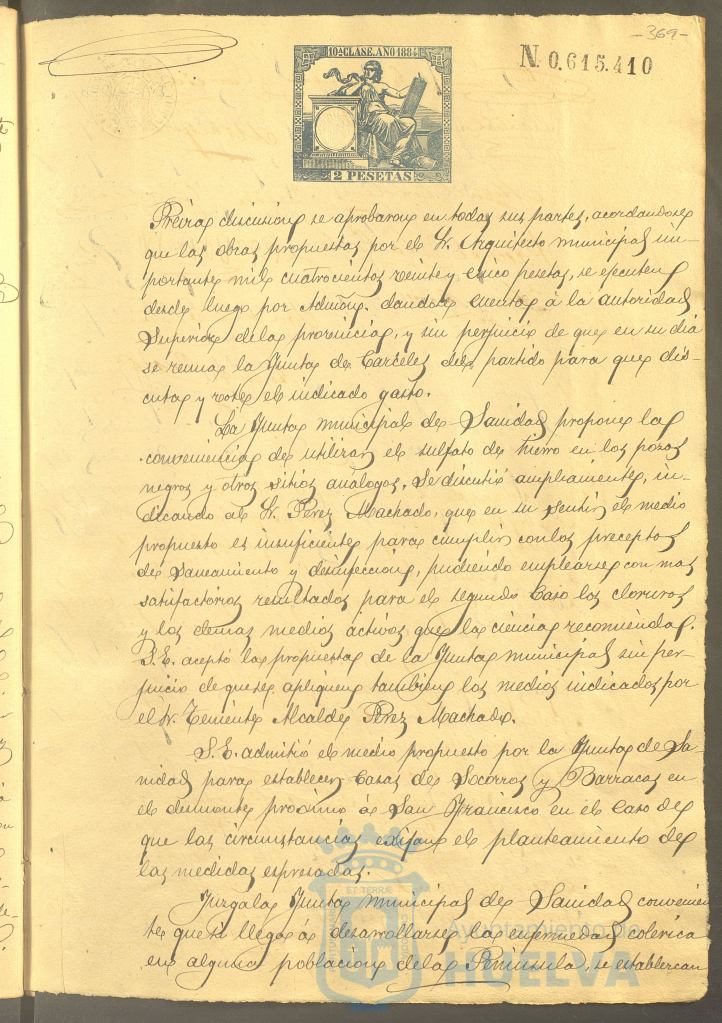 -369-
10ª CLASE. AÑO 1884
N. 0.615.410
2 PESETAS
Prévia discusion se aprobaron en todas sus partes, acordandose
que las obras propuestas por el Sr. Arquitecto municipal im-
portantes mil cuatrocientas veinte y cinco pesetas, se ejecuten
desde luego por Admon. dandose cuenta á la autoridad
Superior de la provincia, y sin perjuicio de que en su dia
se reuna la Junta de Carceles del partido para que dis-
cuta y vote el indicado gasto.
La Junta municipal de Sanidad propone la
conveniencia de utilizar el sulfato de hierro en los pozos
negros y otros sitios análogos. Se discutió ampliamente, in-
dicando el Sr. Perez Machado, que en su sentir el medio
propuesto es insuficiente para cumplir con los preceptos
de saneamiento y desinfeccion, pudiendo emplearse con mas
satisfactorios resultados para el segundo caso los cloruros
y los demas medios activos que la ciencia recomienda.
S.E. aceptó la propuesta de la Junta municipal sin per-
juicio de que se apliquen tambien los medios indicados por
el Sr. Teniente Alcalde Perez Machado.
S.E. admitió el medio propuesto por la Junta de Sa-
nidad para establecer Casas de Socorro y Barracas en
el desmonte procsimo á San Francisco en el caso de
que las circunstancias exijan el planteamiento de
las medidas espresadas.
Juzga la Junta municipal de Sanidad convenien
te que si llega á desarrollarse la enfermedad colerica
en alguna poblacion de la Peninsula, se establezcan
ET TERRÆ
Ayuntamiento de
HUELVA